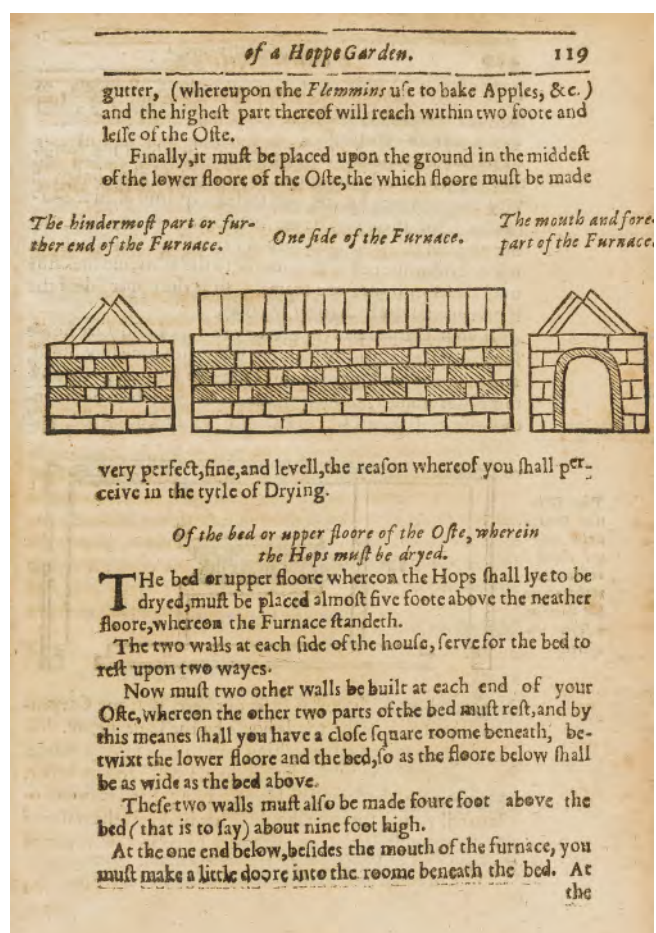 of a Hoppe Garden. 119
gutter, (whereupon the Flemmins uſe to bake Apples, &c.)
and the higheſt part thereof will reach within two foote and
leſſe of the Oſte.
Finally,it muſt be placed upon the ground in the middeſt
of the lower floore of the Oſte,the which floore muſt be made
The hindermoſt part or fur-
ther end of the Furnace.
One ſide of the Furnace.
The mouth and fore-
part of the Furnace.
very perfect,fine,and levell,the reaſon whereof you ſhall per-
ceive in the tytle of Drying.
Of the bed or upper floore of the Oſte, wherein
the Hops muſt be dryed.
THe bed or upper floore whereon the Hops ſhall lye to be
dryed,muſt be placed almoſt five foote above the neather
floore,whereon the Furnace ſtandeth.
The two walls at each ſide of the houſe, ſerve for the bed to
reſt upon two wayes.
Now muſt two other walls be built at each end of your
Oſte,whereon the other two parts of the bed muſt reſt,and by
this meanes ſhall you have a cloſe ſquare roome beneath, be-
twixt the lower floore and the bed,ſo as the floore below ſhall
be as wide as the bed above.
Theſe two walls muſt alſo be made foure foot above the
bed (that is to ſay) about nine foot high.
At the one end below,beſides the mouth of the furnace, you
muſt make a little doore into the roome beneath the bed. At
the